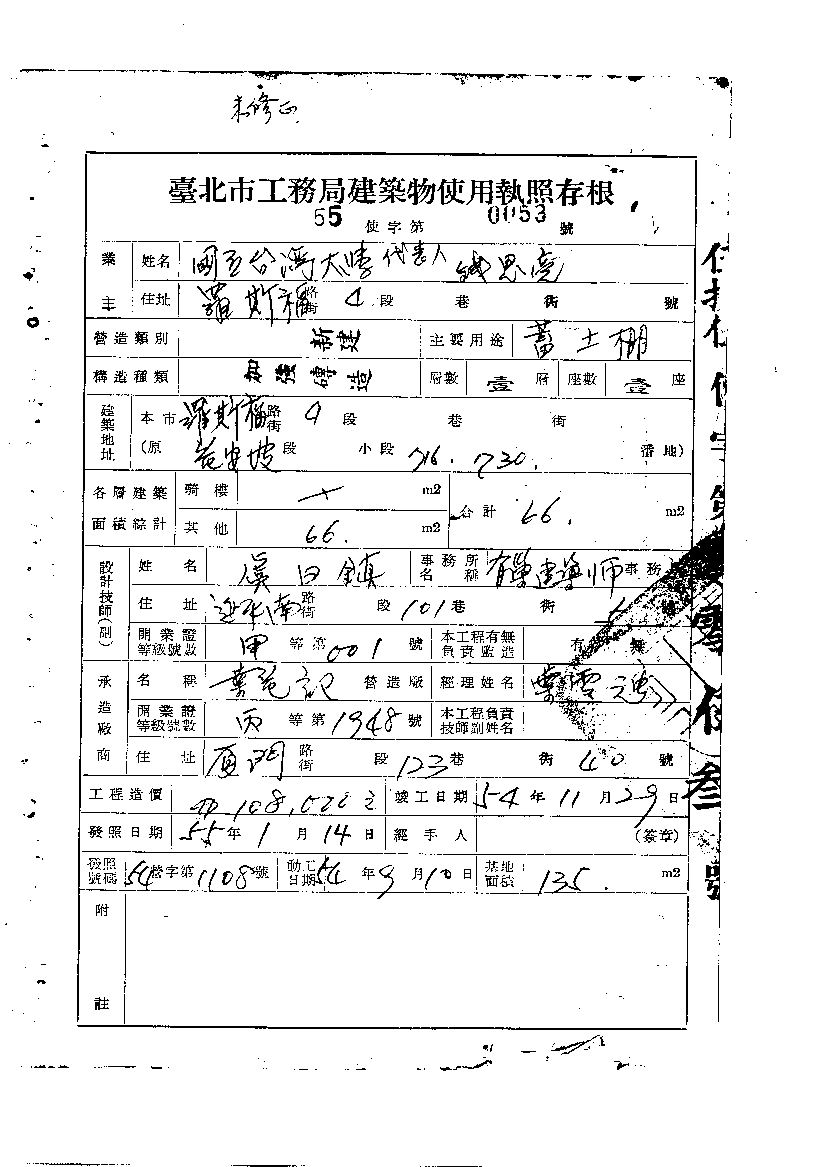 未修正
臺北市工務局建築物使用執照存根
55 使字第 0053 號
業主 姓名 國立台灣大學代表人 錢思亮
住址 羅斯福路街 4 段 巷 街 號
營造類別 新建 主要用途 蓄土棚
構造種類 加強磚造 層數 壹 層 座數 壹 座
建築地址 本市 羅斯福路街 4 段 巷 街
(原 段 小段 716. 730. 番地)
各層建築面積綜計 騎樓 m2 合計 66. m2
其他 66. m2
設計技師(副) 姓名 虞曰鎮 事務所名稱 有巢建築師事務
住址 延平南路街 段 101 巷 街 號
開業證等級號數 甲 等第 001 號 本工程有無負責監造 有 無
承造廠商 名稱 葉 記 營造廠 經理姓名 葉雲
開業證等級號數 丙 等第 1948 號 本工程負責技師副姓名
住址 廈門路街 段 123 巷 街 40 號
工程造價 108,022 竣工日期 54 年 11 月 29 日
發照日期 55 年 1 月 14 日 經手人 (簽章)
發照號碼 54 營字第 1108 號 動工日期 54 年 9 月 10 日 基地面積 135. m2
附註
使字第 零伍叁號